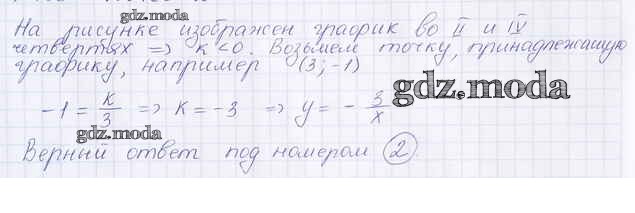 gdz.moda
На рисунке изображен график во II и IV
четвертях => k<0. Возьмем точку, принадлежащую
графику, например (3;-1)
gdz.moda
-1 = k/3 => k = -3 => y = - 3/x
gdz.moda
Верный ответ под номером 2.